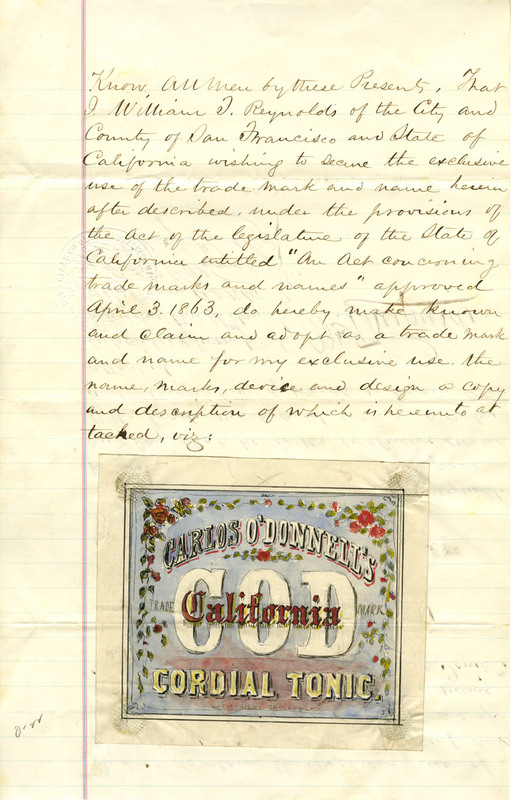 Know All Men by these Presents, That
I William T. Reynolds of the City and
County of San Francisco and State of
California wishing to secure the exclusive
use of the trade mark and name herein
after described, under the provisions of
the Act of the legislature of the State of
California entitled "An Act concerning
trade marks and names" approved
April 3. 1863, do hereby make known
and claim and adopt as a trade mark
and name for my exclusive use the
name, marks, device and design a copy
and description of which is hereunto at
tached, viz:
CARLOS O'DONNELL'S
COD
TRADE California MARK
CORDIAL TONIC.